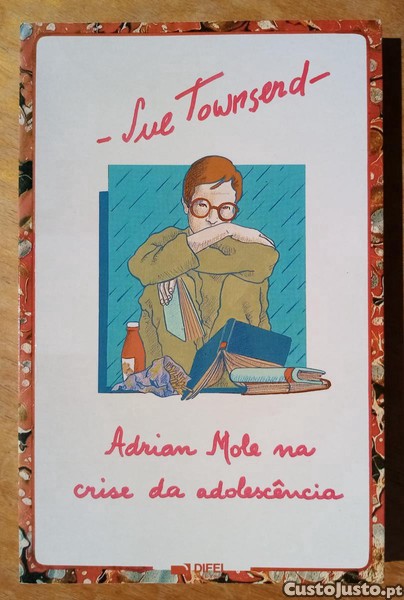 - Sue Townsend -
Adrian Mole na
crise da adolescência
DIFEL
CustoJusto.pt